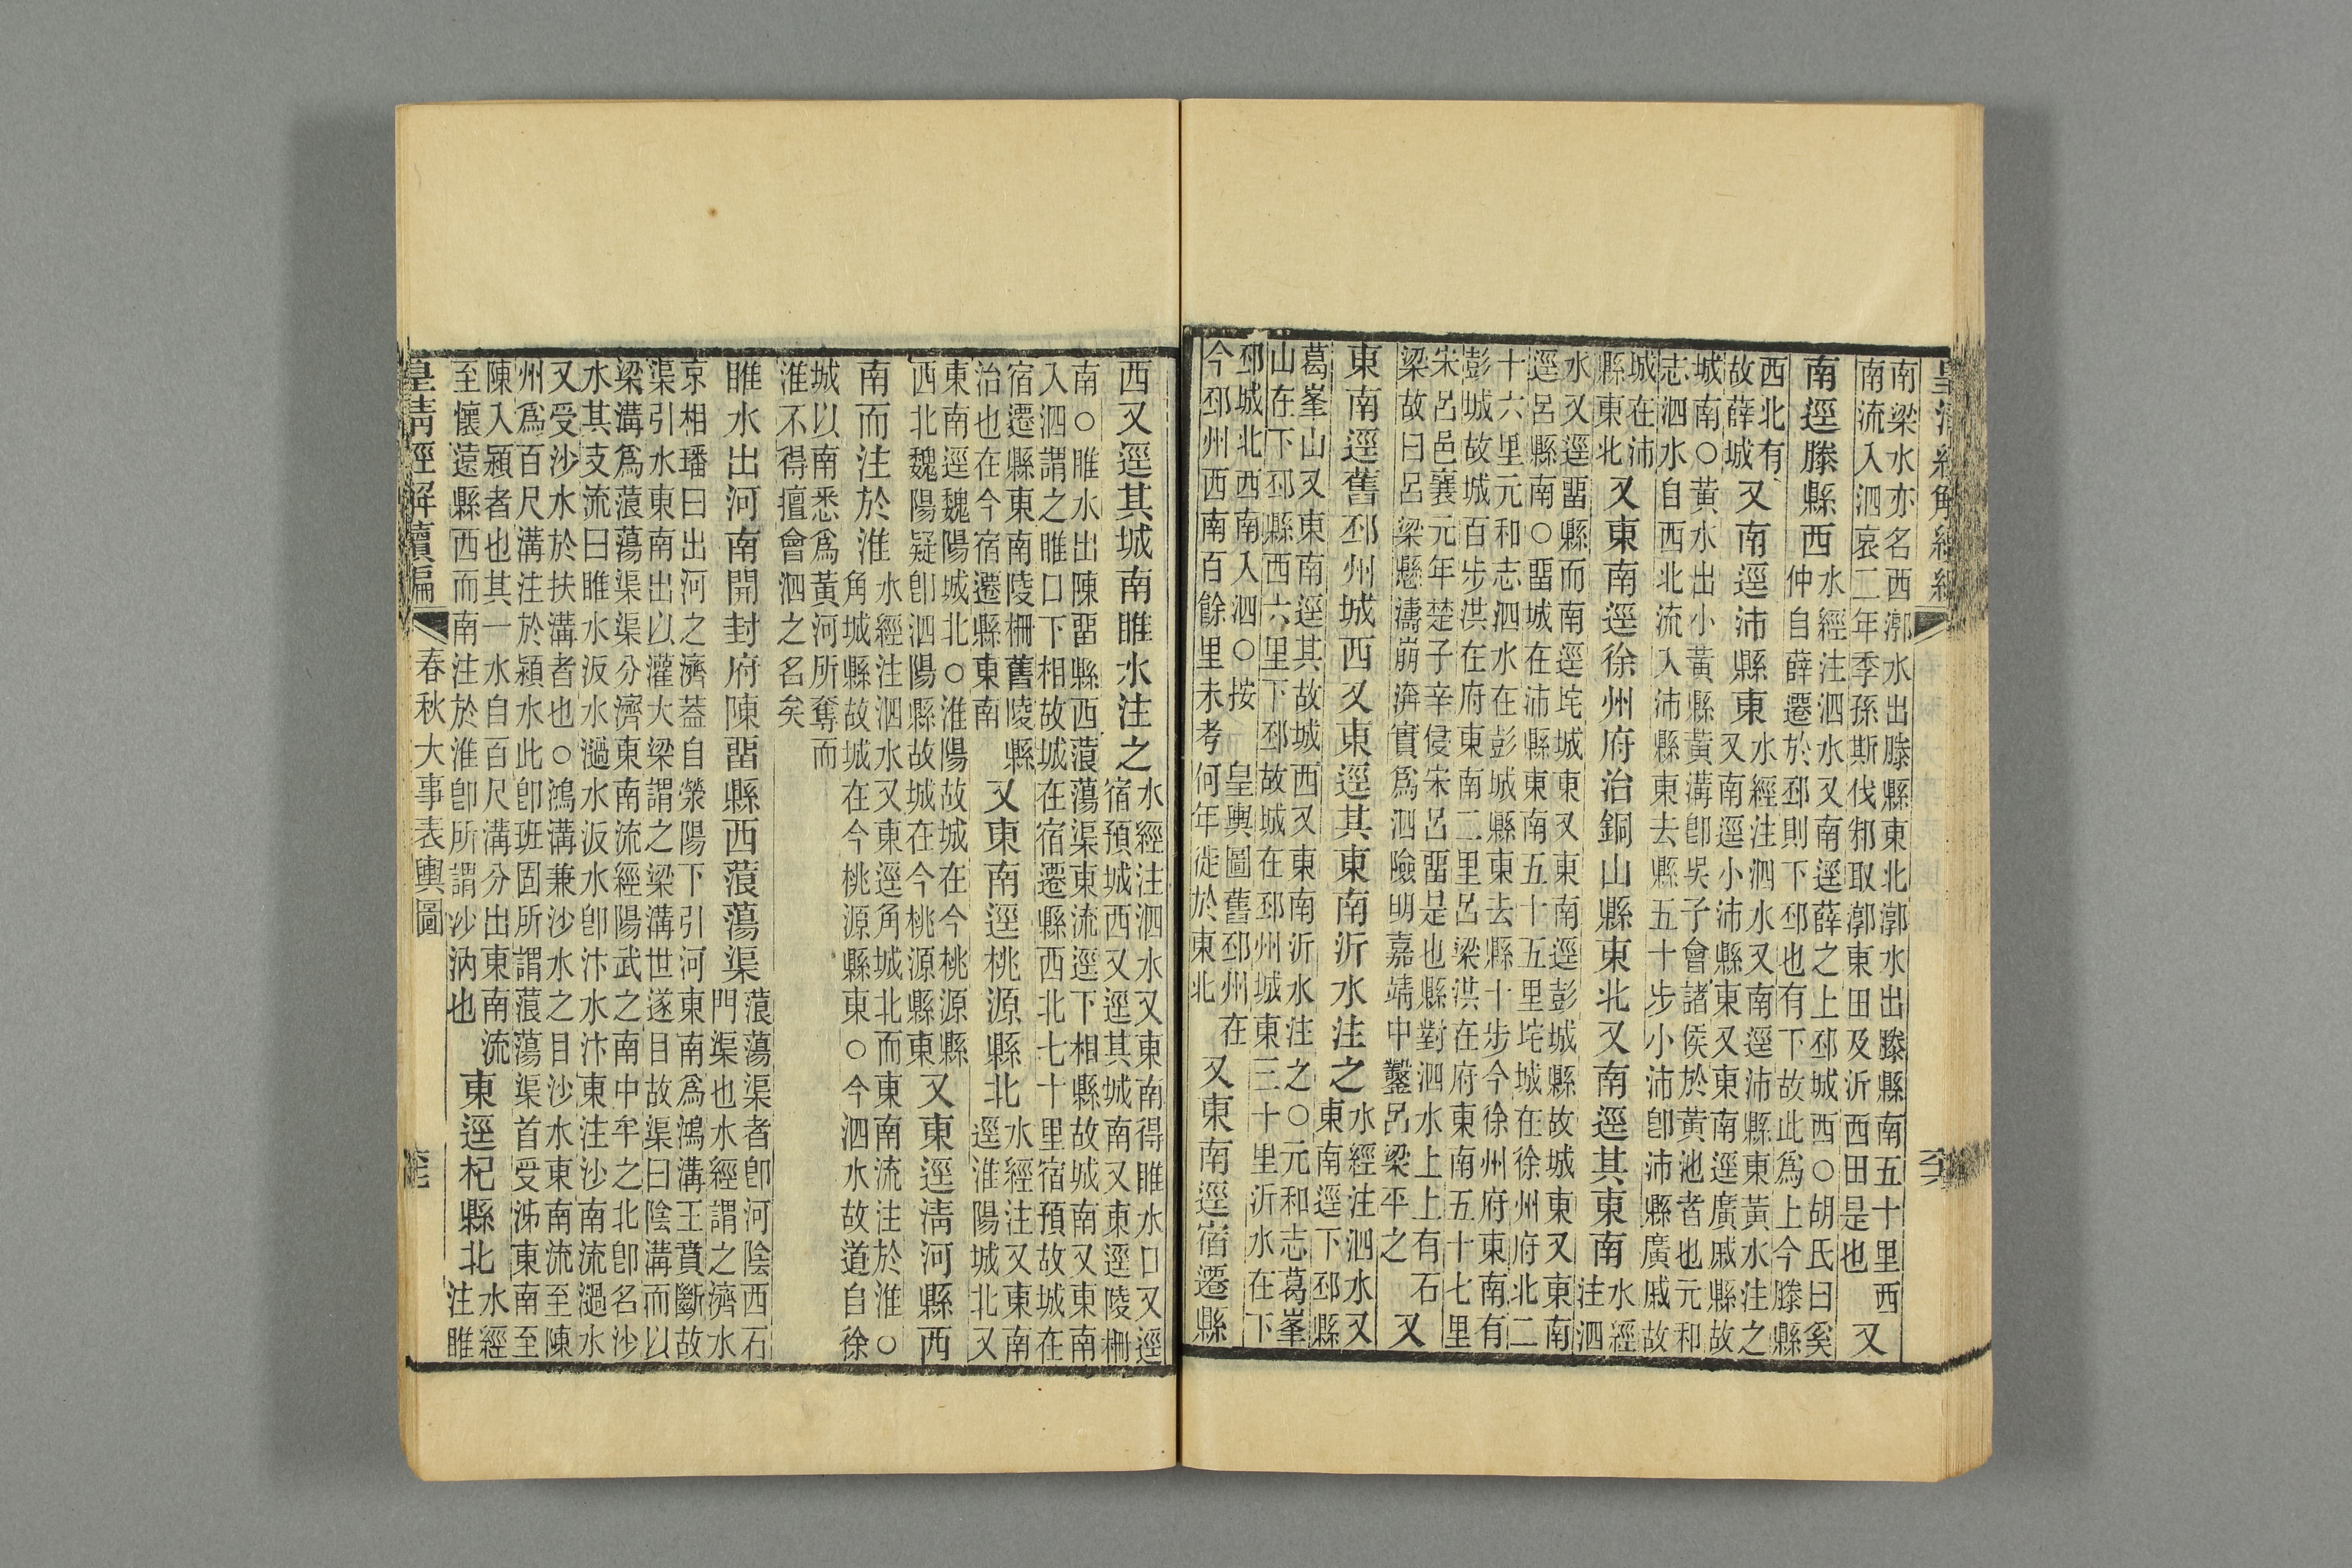 南梁水亦名西漷水出滕縣東北漷水出滕縣南五十里西
南流入泗哀二年季孫斯伐邾取漷東田及沂西田是也
又
南逕滕縣西
水經注泗水又南逕薛之上邳城西○胡氏曰奚
仲自薛遷於邳則下邳也有下故此爲上今滕縣
西北有
故薛城
又南逕沛縣東
水經注泗水又南逕沛縣東黃水注之
又南逕小沛縣東又東南逕廣戚縣故
城南○黃水出小黃縣黃溝卽吳子會諸侯於黃池者也元和
志泗水自西北流入沛縣東去縣五十步小沛卽沛縣廣戚故
城在沛
縣東北
又東南逕徐州府治銅山縣東北又南逕其東南
水經
注泗
水又逕畱縣而南逕垞城東又東南逕彭城縣故城東又東南
逕呂縣南○畱城在沛縣東南五十五里垞城在徐州府北二
十六里元和志泗水在彭城縣東去縣十步今徐州府東南有
彭城故城百步洪在府東南二里呂梁洪在府東南五十七里
宋呂邑襄元年楚子辛侵宋呂畱是也縣對泗水上上有石
梁故曰呂梁懸濤崩渀實爲泗險明嘉靖中鑿呂梁平之
又
東南逕舊邳州城西又東逕其東南沂水注之
水經注泗水又
東南逕下邳縣
葛嶧山又東南逕其故城西又東南沂水注之○元和志葛嶧
山在下邳縣西六里下邳故城在邳州城東三十里沂水在下
邳城北西南入泗○按皇輿圖舊邳州在
今邳州西南百餘里未考何年徙於東北
又東南逕宿遷縣
西又逕其城南睢水注之
水經注泗水又東南得睢水口又逕
宿預城西又逕其城南又東逕陵柵
南○睢水出陳畱縣西蒗蕩渠東流逕下相縣故城南又東南
入泗謂之睢口下相故城在宿遷縣西北七十里宿預故城在
宿遷縣東南陵柵舊陵縣
治也在今宿遷縣東南
又東南逕桃源縣北
水經注又東南
逕淮陽城北又
東南逕魏陽城北○淮陽故城在今桃源縣
西北魏陽疑卽泗陽縣故城在今桃源縣東
又東逕淸河縣西
南而注於淮
水經注泗水又東逕角城北而東南流注於淮○
角城縣故城在今桃源縣東○今泗水故道自徐
城以南悉爲黃河所奪而
淮不得擅會泗之名矣
睢水出河南開封府陳畱縣西蒗蕩渠
蒗蕩渠者卽河陰西石
門渠也水經謂之濟水
京相璠曰出河之濟葢自滎陽下引河東南爲鴻溝王賁斷故
渠引水東南出以灌大梁謂之梁溝世遂目故渠曰陰溝而以
梁溝爲蒗蕩渠渠分濟東南流經陽武之南中牟之北卽名沙
水其支流曰睢水汳水濄水汳水卽汴水汴東注沙南流濄水
又受沙水於扶溝者也○鴻溝兼沙水之目沙水東南流至陳
州爲百尺溝注於潁水此卽班固所謂蒗蕩渠首受泲東南至
陳入潁者也其一水自百尺溝分出東南流
至懷遠縣西而南注於淮卽所謂沙汭也
東逕杞縣北
水經
注睢
皇淸經解續編
春秋大事表輿圖